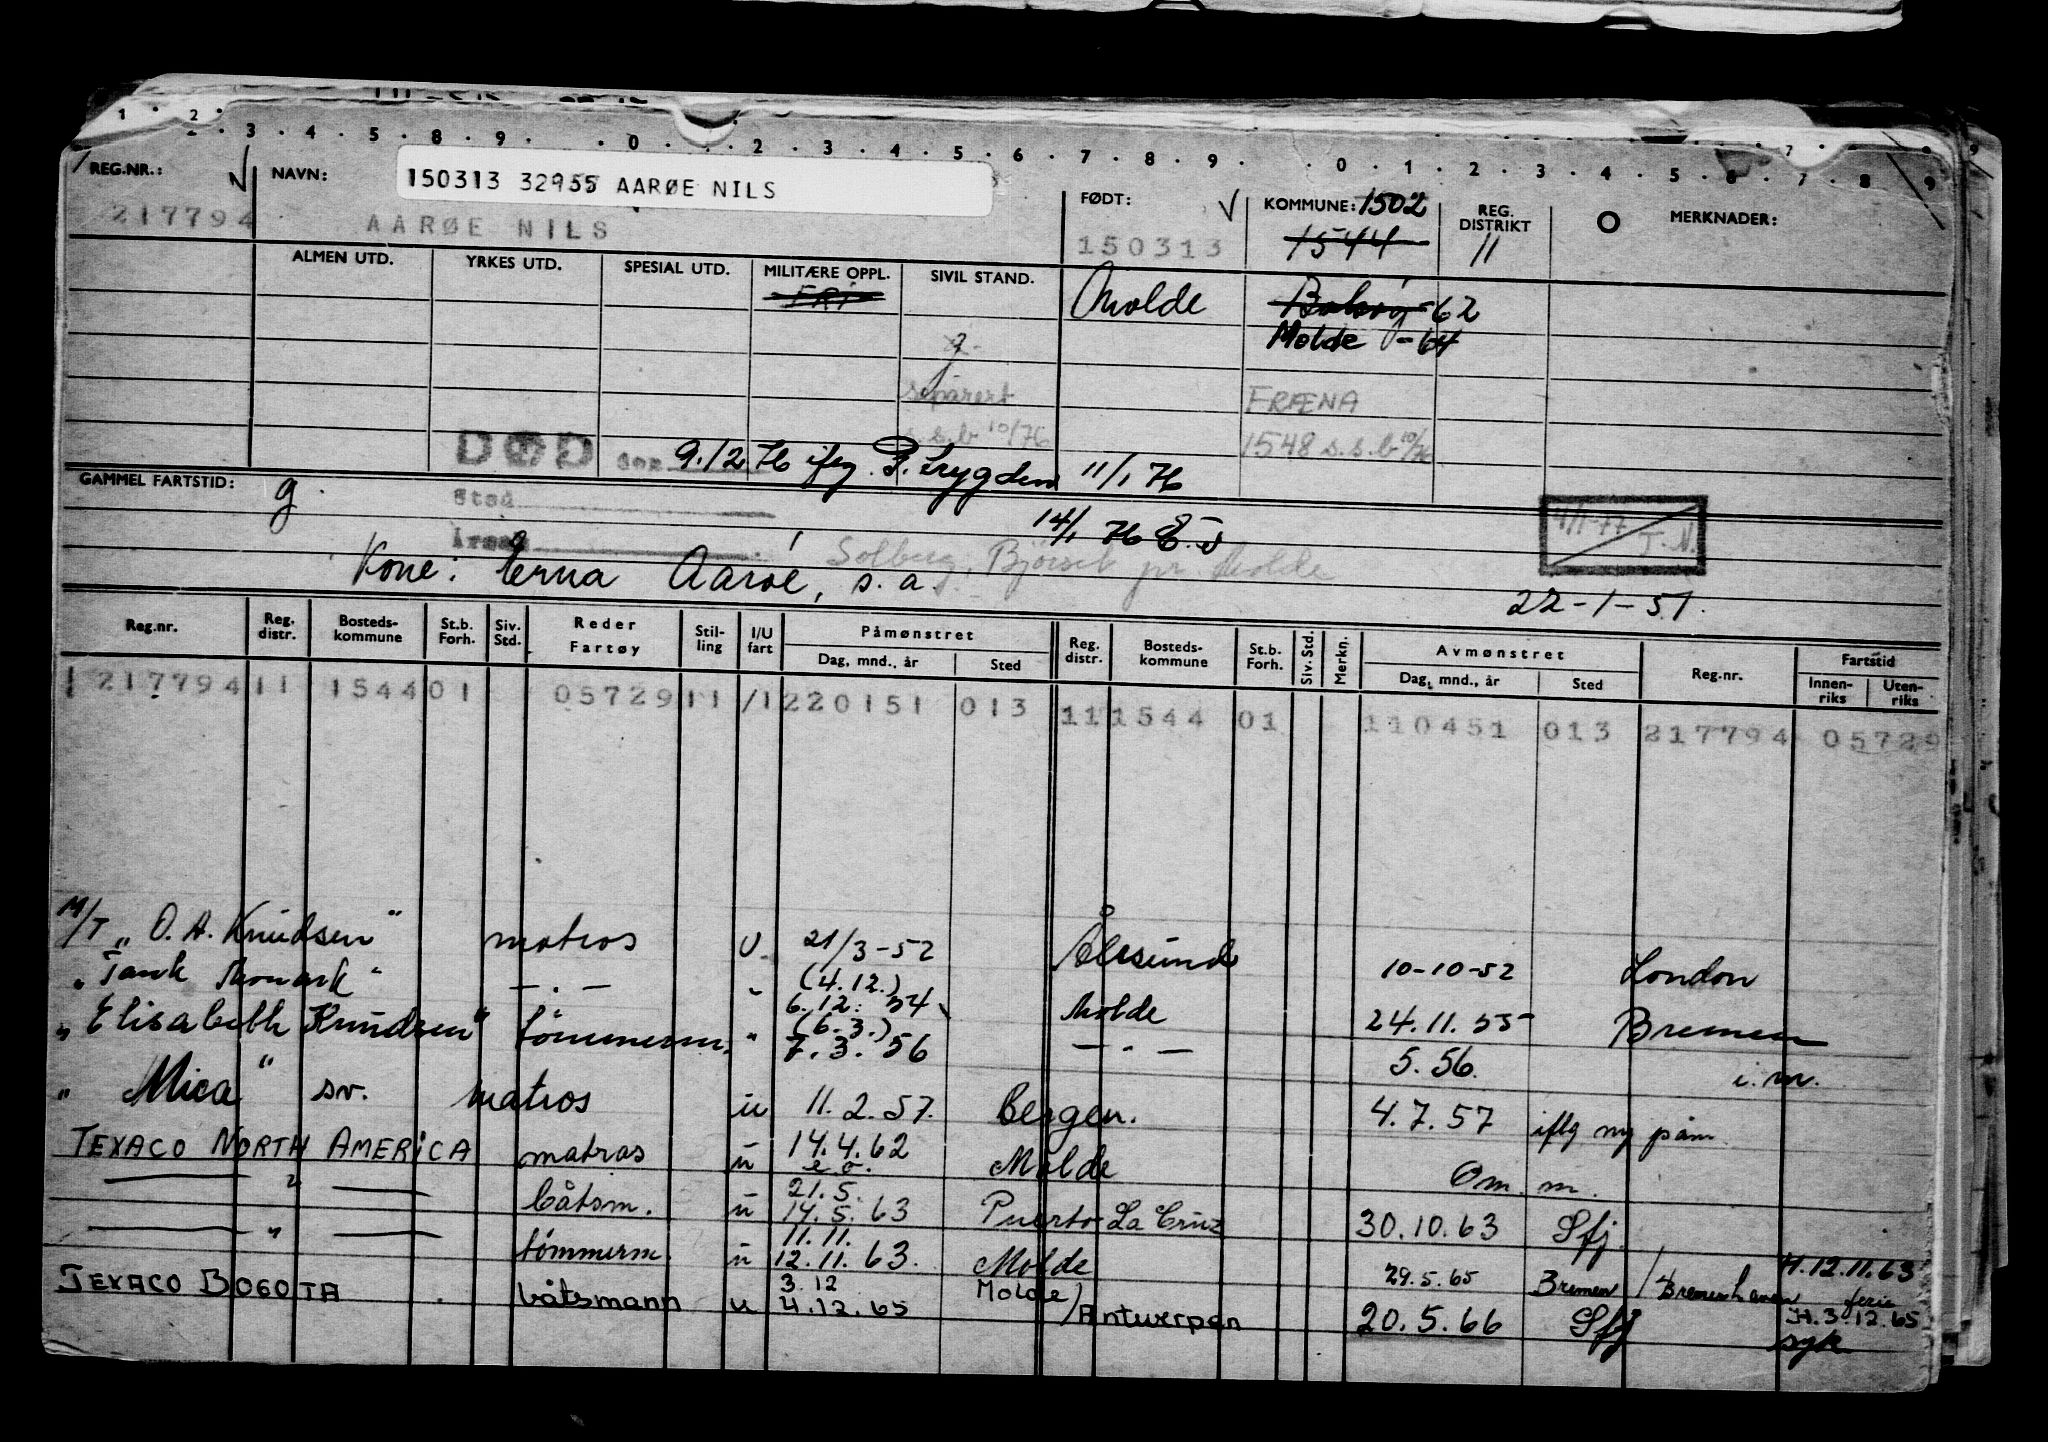 1 · 2 · 3 · 4 · 5 · 8 · 9 · 0 · 2 · 3 · 4 · 5 · 6 · 7 · 8 · 9 · 0 · 1 · 2 · 3 · 4 · 5 · 6 · 7 · 8 · 9
REG.NR.: NAVN: 150313 32955 AARØE NILS FØDT: KOMMUNE: 1502 REG. DISTRIKT O MERKNADER:
217794 AARØE NILS 150313 1544 11
ALMEN UTD. YRKES UTD. SPESIAL UTD. MILITÆRE OPPL. SIVIL STAND.
FRI Molde -62
Molde -64
g
separert FRÆNA
s.s.b 10/76 1548 s.s.b 10/76
DØD 9.12 76 ifg. P. Trygden 11/1 76
GAMMEL FARTSTID: g Sted
14/1 76 T.N.
Årsak
Solberg, Bjørset pr Molde
Kone: Erna Aarøe, s.a.
22-1-51.
Reg.nr. Reg. distr. Bosteds-kommune St.b. Forh. Siv. Std. Reder Fartøy Stil-ling I/U fart Påmønstret Dag, mnd., år Sted Reg. distr. Bosteds-kommune St.b. Forh. Siv. Std. Merkn. Avmønstret Dag, mnd., år Sted Reg.nr. Fartstid Innen-riks Uten-riks
217794 11 1544 01 05729 11 /1 220151 013 11 1544 01 110451 013 217794 05729
M/T „O. A. Knudsen" matros U. 21/3-52 Ålesund 10-10-52 London
„ Tank Monark" — . — " (4.12.) 6.12. 54 Molde 24.11.55 Bremen
„ Elisabeth Knudsen" tömmerm. " (6.3.) 7.3.56 — . — 5.56. i.m.
" Mica" sv. matros u 11.2.57. Bergen. 4.7.57 iflg ny påm.
TEXACO NORTH AMERICA matros u 14.4.62 e.o. Molde Om. m.
— " — båtsm. u 21.5. 14.5.63 Puerto La Cruz 30.10.63 Sfj.
— " — tömmerm. u 11.11. 12.11.63. Molde 29.5.65 Bremen / Bremerhaven H.12.11.63 ferie
TEXACO BOGOTA båtsmann u 3.12 4.12.65 Molde / Antwerpen 20.5.66 Sfj H.3.12.65 syk